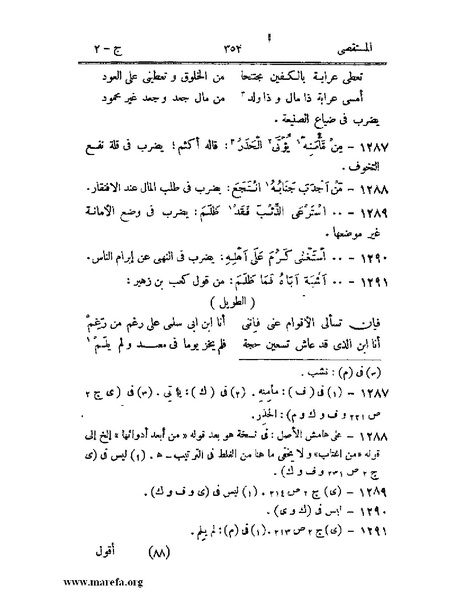 المستقصى ٣٥٢ ج - ٢
تعطى عرابة بالكفين مجتحا من الخلوق و تعطينى على العود
أمسى عرابة ذا مال و ذا ولد ٣ من مال جعد وجعد غير محمود
يضرب فى ضياع الصنيعة .
١٢٨٧ - مِنْ مَأْمَنِهِ ١ يُؤْتَى ٢ الْحَذَرُ ٣ : قاله أكثم؛ يضرب فى قلة نفع
التخوف .
١٢٨٨ - مَنْ أَجْدَبَ جَنَابُهُ ١ انْتَجَعَ: يضرب فى طلب المال عند الافتقار.
١٢٨٩ - .. اسْتَرْعَى الذِّئْبَ فَقَدْ ١ ظَلَمَ: يضرب فى وضع الأمانة
غير موضعها .
١٢٩٠ - .. اسْتَغْنَى كَرُمَ عَلَى أَهْلِهِ: يضرب فى النهى عن إبرام الناس.
١٢٩١ - .. أَشْبَهَ أَبَاهُ فَمَا ظَلَمَ: من قول كعب بن زهير :
( الطويل )
فإن تسألى الأقوام عنى فإننى أنا ابن ابى سلمى على رغم من رَغِمْ
أنا ابن الذى قد عاش تسعين حجة فلم يخز يوما فى معد و لم يلم ١
(٣) فى (م): نشب .
١٢٨٧ - (١) فى (ف) : مأمنِهِ . (٢) فى (ك) : يأتى . (٣) فى (ى ج ٢
ص ٢٢١ و ف و ك و م) : الحَذِر .
١٢٨٨ - على هامش الأصل : فى نسخة هو بعد قوله «من أبعد أدوائها» إلخ إلى
قوله «من اغتاب» و لا يخفى ما هنا من الغلط فى الترتيب - ه . (١) ليس فى (ى
ج ٢ ص ٢٣١ و ف و ك) .
١٢٨٩ - (ى) ج ٢ ص ٢١٤ . (١) ليس فى (ى و ف و ك) .
١٢٩٠ - ليس فى (ك و ى) .
١٢٩١ - (ى) ج ٢ ص ٢١٣ . (١) فى (م) : لم يلم .
(٨٨) أقول
www.marefa.org